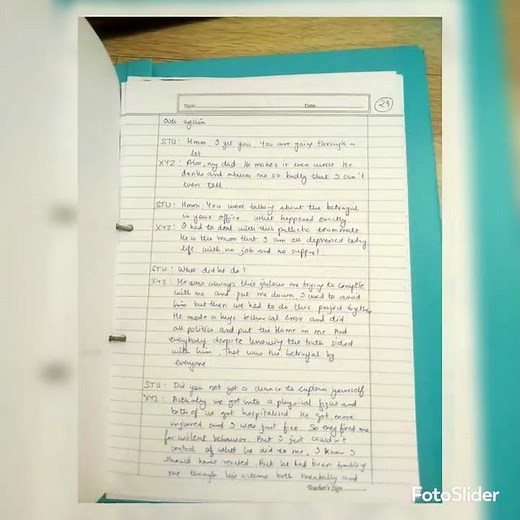 Topic Date 29
Over again
STU: Hmm. I get you. You are going through a
lot
XYZ: Also, my dad. He makes it even worse. He
drinks and abuses me so badly that I can't
even tell.
STU: Hmm. You were talking about the betrayal
in your office. What happened exactly
XYZ: I had to deal with this pathetic teammate
He is the reason that I am all depressed today
life with no job and no support.
STU: What did he do?
XYZ: He was always this jealous one trying to compete
with me and put me down. I used to avoid
him but then we had to do this project together
He made a huge technical error and did
all politics and put the blame on me. And
everybody despite knowing the truth sided
with him. That was the betrayal by
everyone
STU: Did you not get a chance to explain yourself
XYZ: Actually we got into a physical fight and
both of us got hospitalised. He got more
injured and I was just fine. So they fired me
for violent behaviour. But I just couldn't
control of what he did to me. I know I
should have reacted. But he had been troubling
me through his actions both mentally and
Teacher's Sign
FotoSlider